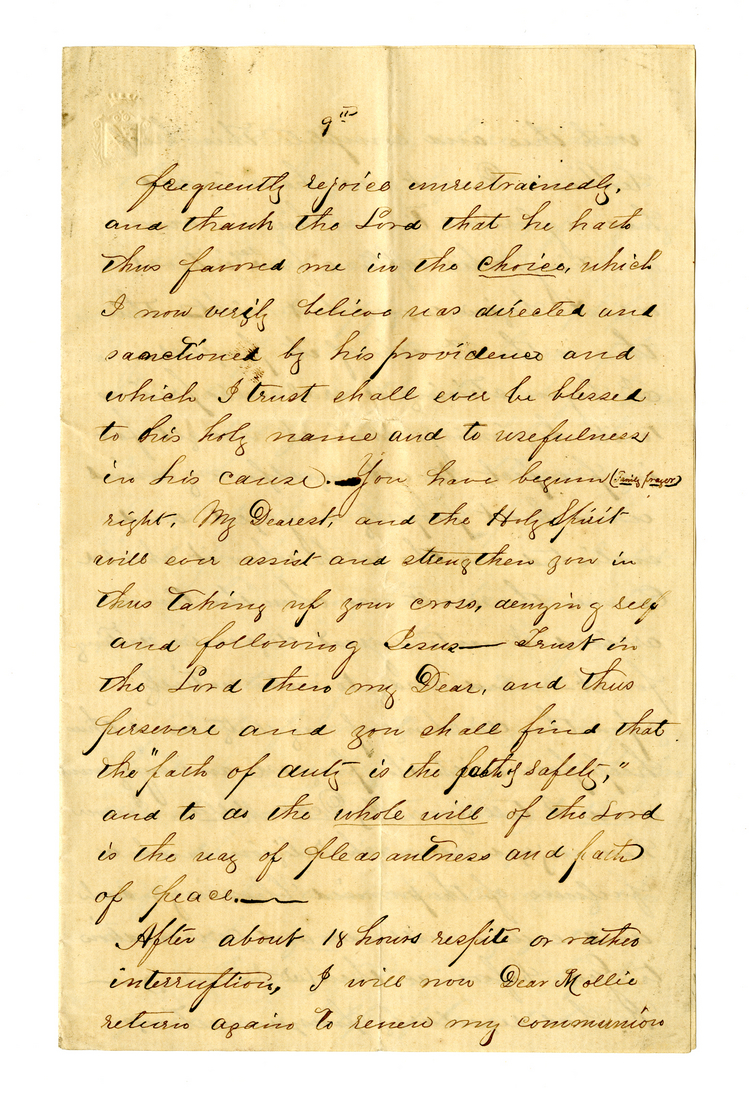 9th
frequently rejoice unrestrainedly,
and thank the Lord that he hath
thus favored me in the choice, which
I now verily believe was directed and
sanctioned by his providence and
which I trust shall ever be blessed
to his holy name and to usefulness
in his cause. You have begun (Family prayer)
right, My Dearest, and the Holy Spirit
will ever assist and strengthen you in
thus taking up your cross, denying self
and following Jesus — Trust in
the Lord then my Dear, and thus
persevere and you shall find that
the "path of duty is the path of safety,"
and to do the whole will of the Lord
is the way of pleasantness and path
of peace. —
After about 18 hours respite or rather
interruption, I will now Dear Mollie
return again to renew my communion